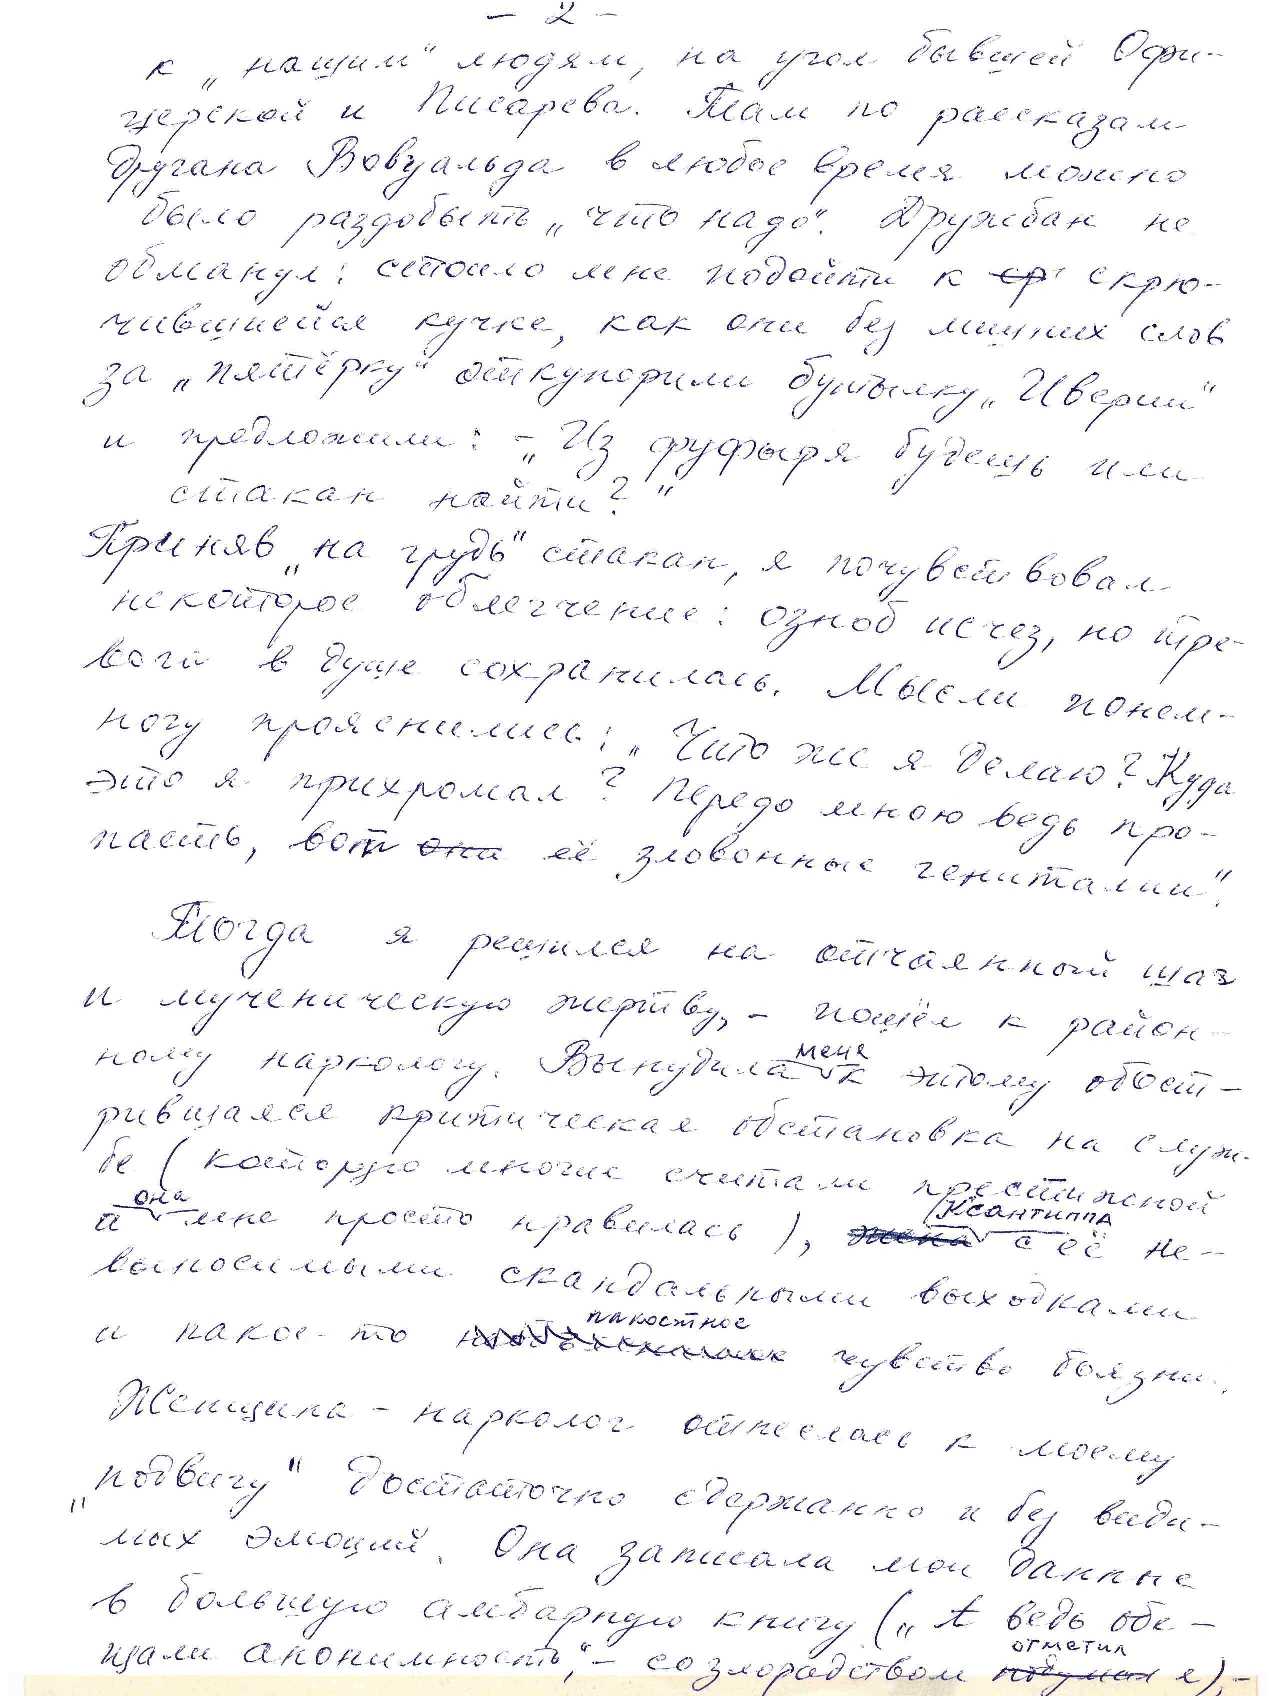 - 2 -
к „нашим" людям, на угол бывшей Офи-
церской и Писарева. Там по рассказам
другана Вовуальда в любое время можно
было раздобыть „что надо". Дружбан не
обманул: стоило мне подойти к ср скрю-
чившейся кучке, как они без лишних слов
за „пятёрку" откупорили бутылку „Иверии"
и предложили: - „Из фуфыря будешь или
стакан найти?"
Приняв „на грудь" стакан, я почувствовал
некоторое облегчение: озноб исчез, но тре-
вога в душе сохранилась. Мысли понем-
ногу прояснились: „Что же я делаю? Куда
это я прихромал? Передо мною ведь про-
пасть, вот она её зловонные гениталии".
Тогда я решился на отчаянный шаг
и мученическую жертву, - пошёл к район-
ному наркологу. Вынудила меня к этому обост-
рившаяся критическая обстановка на служ-
бе (которую многие считали престижной
а она мне просто нравилась), жена Ксантиппа с её не-
выносимыми скандальными выходками
и какое-то пакостное чувство боязни.
Женщина - нарколог отнеслась к моему
„подвигу" достаточно сдержанно и без види-
мых эмоций. Она записала мои данные
в большую амбарную книгу („А ведь обе-
щали анонимность", - со злорадством подумал отметил я), -